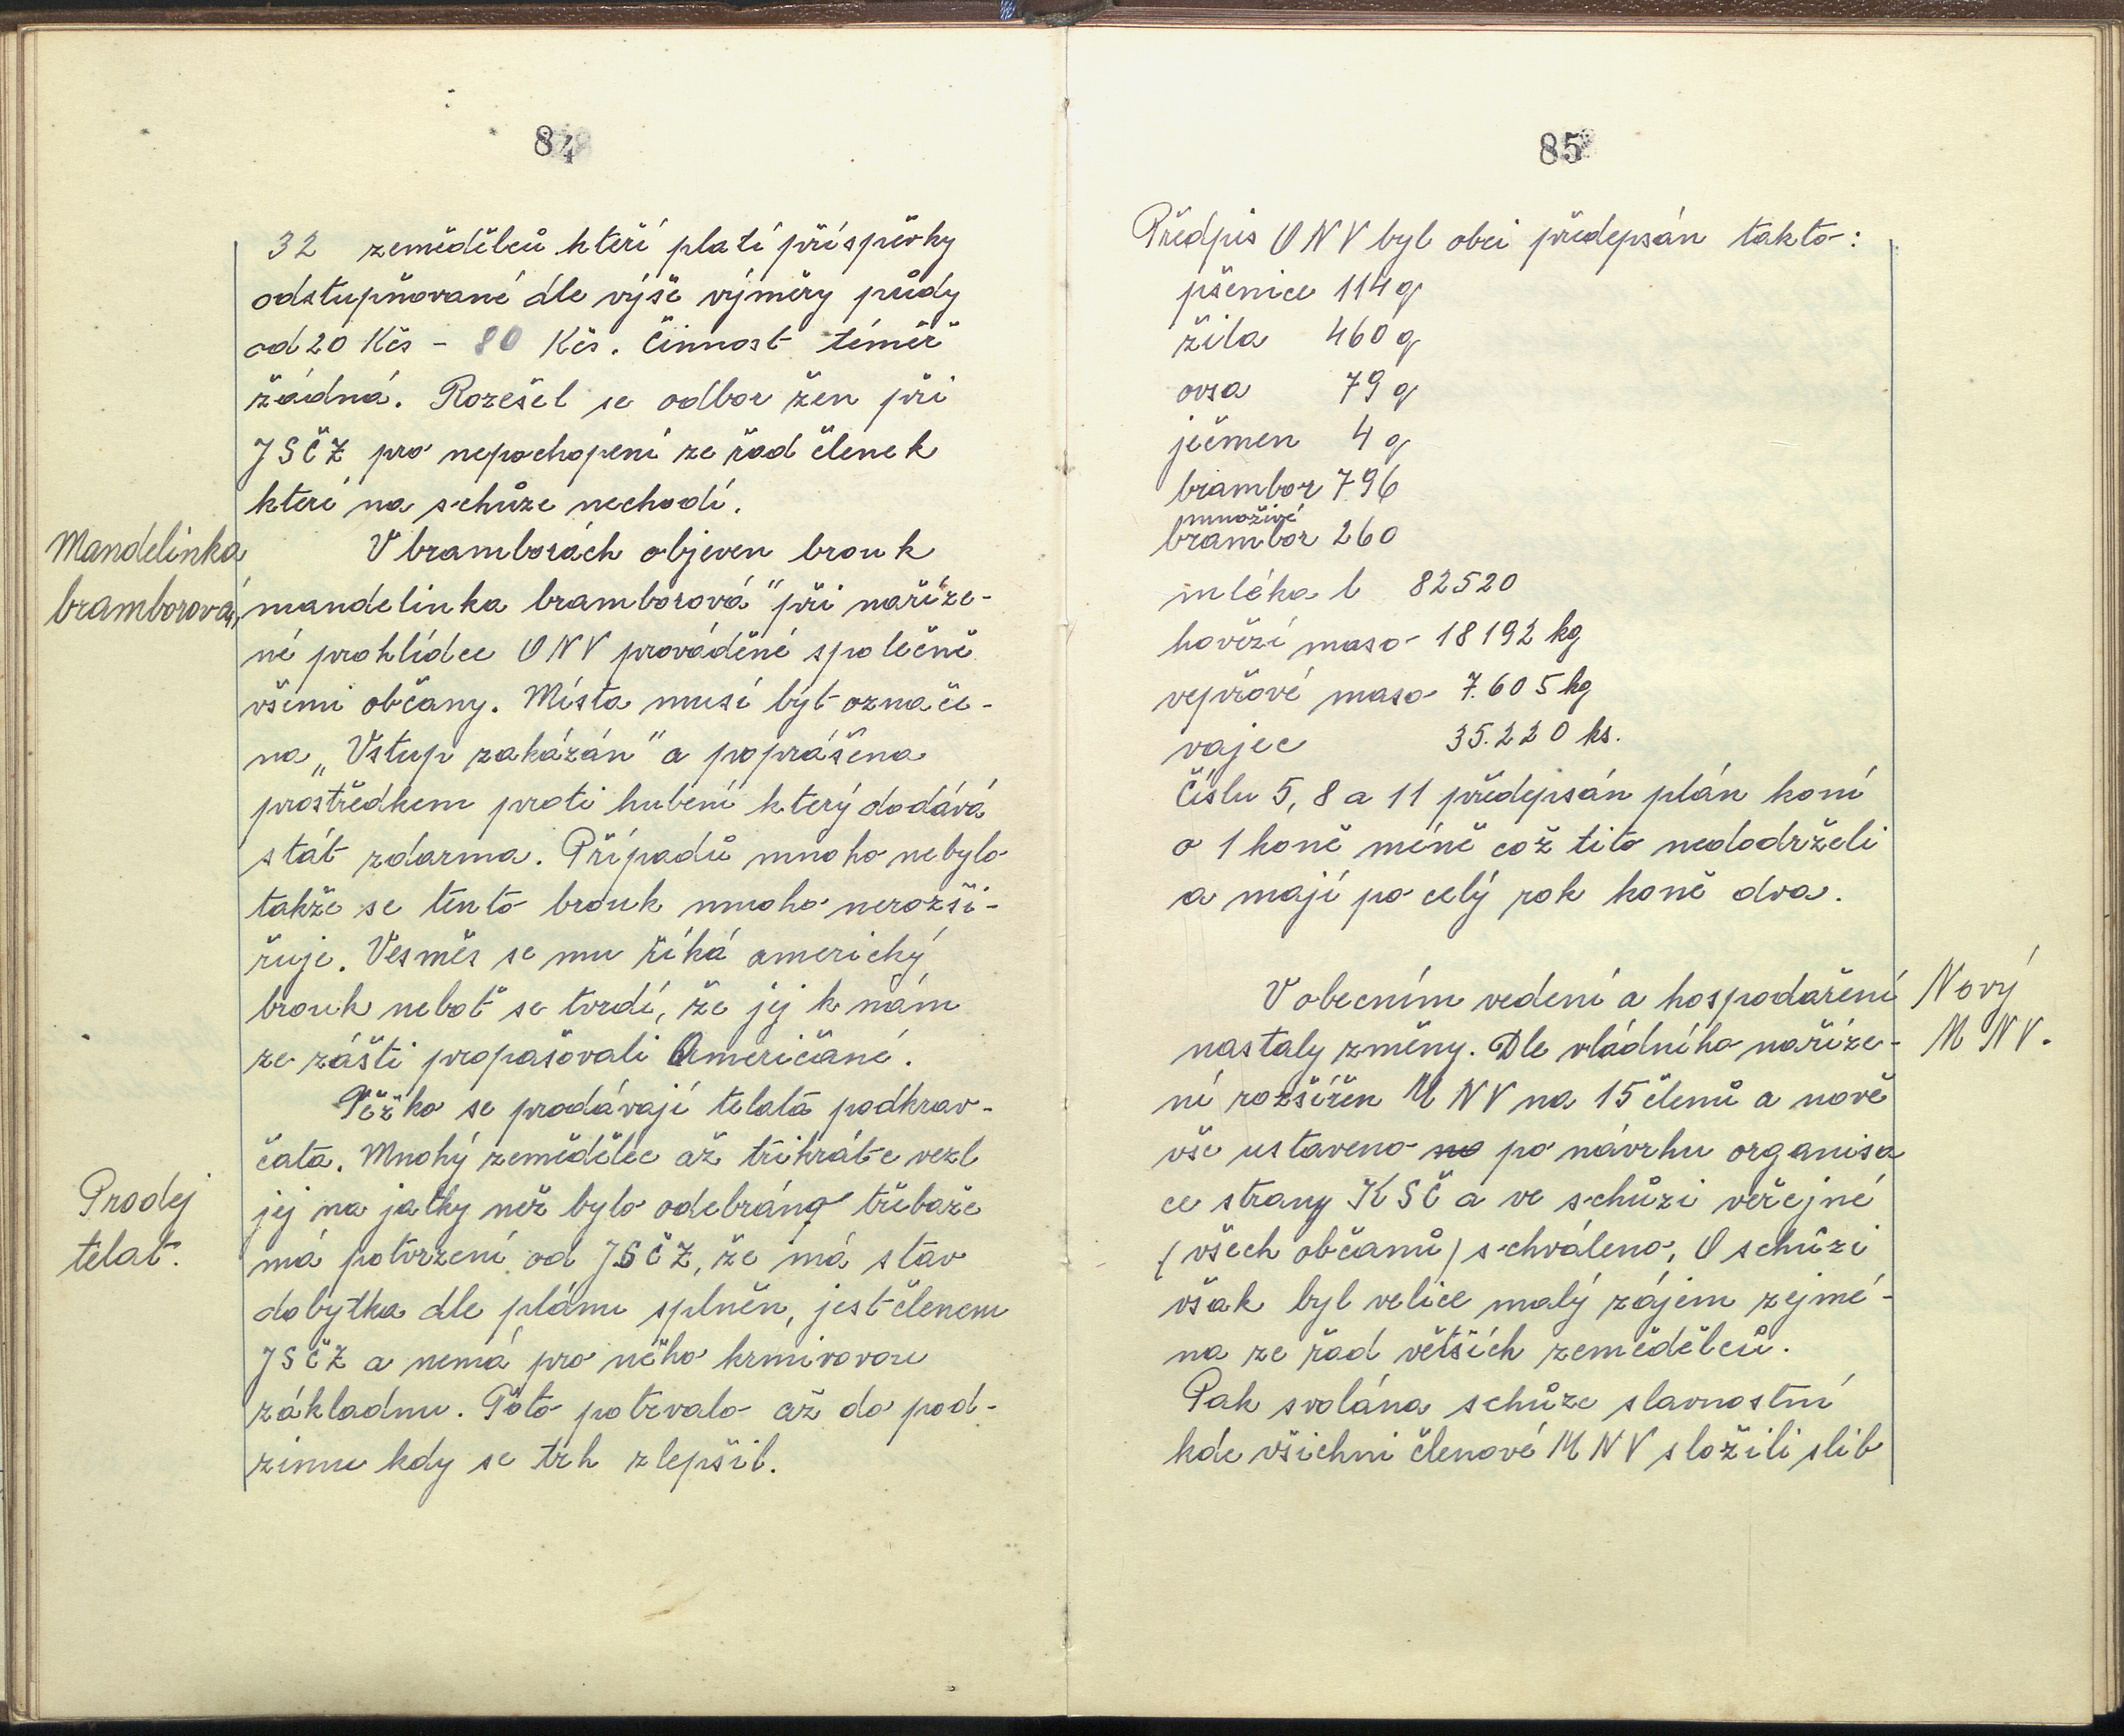 84
32 zemědělců kteří platí příspěvky
odstupňované dle výše výměry půdy
od 20 Kčs - 80 Kčs. Činnost téměř
žádná. Rozešel se odbor žen při
JSČZ pro nepochopení ze řad členek
kteří na schůze nechodí.
Mandelinka
bramborová
V bramborách objeven brouk
„mandelinka bramborová" při naříze-
né prohlídce ONV prováděné společně
všemi občany. Místa musí být označe-
na „Vstup zakázán" a poprášena
prostředkem proti hubení který dodává
stát zdarma. Případů mnoho nebylo
takže se tento brouk mnoho nerozši-
řuje. Vesměs se mu říká americký
brouk neboť se tvrdí, že jej k nám
ze zášti propašovali Američané.
Těžko se prodávají telata podkrav-
čata. Mnohý zemědělec až třikráte vezl
Prodej
telat.
jej na jatky než bylo odebráno třebaže
má potvrzení od JSČZ, že má stav
dobytka dle plánu splněn, jest členem
JSČZ a nemá pro něho krmivovou
základnu. Toto potrvalo až do pod-
zimu kdy se trh zlepšil.
85
Předpis ONV byl obci předepsán takto:
pšenice 114 q
žita 460 q
ovsa 79 q
ječmen 4 q
brambor 796
množivé
brambor 260
mléka l 82520
hovězí maso 18192 kg
vepřové maso 7.605 kg
vajec 35.220 ks.
Číslu 5, 8 a 11 předepsán plán koní
o 1 koně méně což tito nedodrželi
a mají po celý rok koně dva.
Nový
MNV.
V obecním vedení a hospodaření
nastaly změny. Dle vládního naříze-
ní rozšířen MNV na 15 členů a nově
vše ustaveno na po návrhu organisa
ce strany KSČ a ve schůzi veřejné
(všech občanů) schváleno. O schůzi
však byl velice malý zájem zejmé-
na ze řad větších zemědělců.
Pak svolána schůze slavnostní
kde všichni členové MNV složili slib